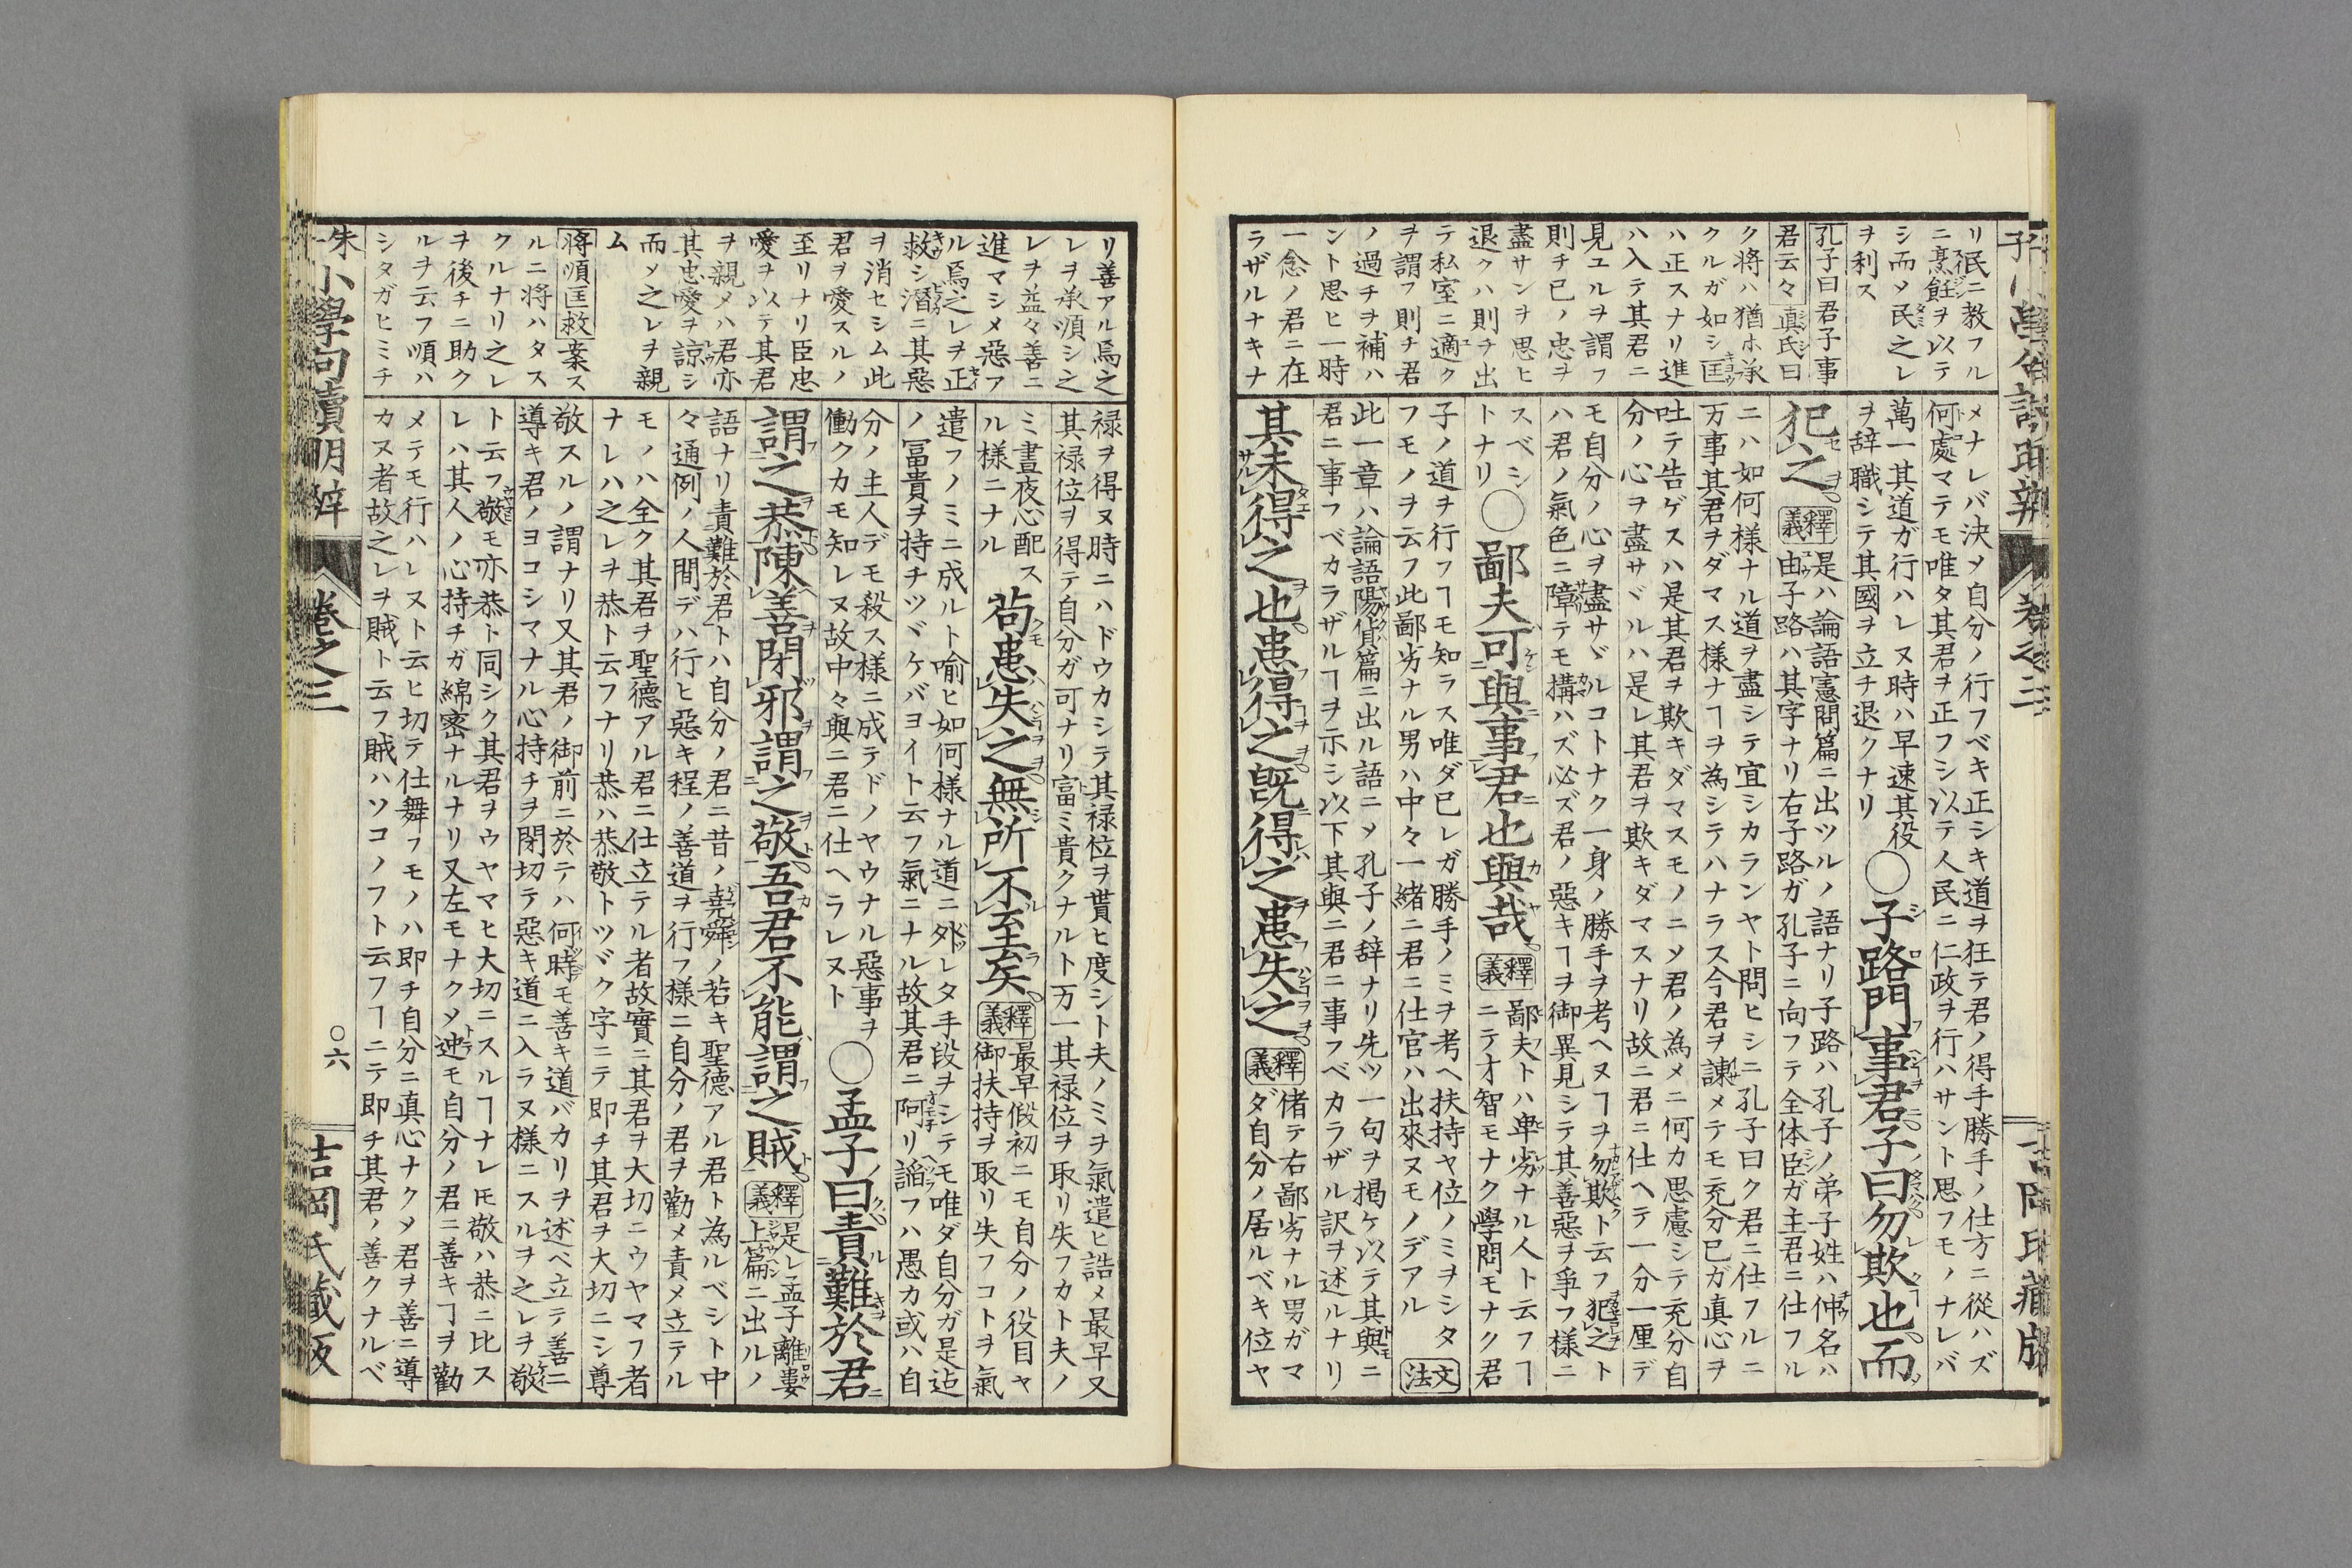 リ民ニ教フル
ニ烹飪ヲ以テ
シ而メ民之レ
ヲ利ス
孔子曰君子事
君云々 真氏曰
ク將ハ猶ホ承
クルガ如シ匡
ハ正スナリ進
ハ入テ其君ニ
見ユルヲ謂フ
則チ已ノ忠ヲ
盡サンヲ思ヒ
退クハ則チ出
テ私室ニ適ク
ヲ謂フ則チ君
ノ過チヲ補ハ
ント思ヒ一時
一念ノ君ニ在
ラザルナキナ
メナレバ決メ自分ノ行フベキ正シキ道ヲ狂テ君ノ得手勝手ノ仕方ニ從ハズ
何處マテモ唯タ其君ヲ正フシ以テ人民ニ仁政ヲ行ハサント思フモノナレバ
萬一其道ガ行ハレヌ時ハ早速其役
ヲ辞職シテ其國ヲ立チ退クナリ
〇子路問事君子曰勿欺也而
犯之
釋義
是ハ論語憲問篇ニ出ツルノ語ナリ子路ハ孔子ノ弟子姓ハ仲名ハ
由子路ハ其字ナリ右子路ガ孔子ニ向フテ全体臣ガ主君ニ仕フル
ニハ如何様ナル道ヲ盡シテ宜シカランヤト問ヒシニ孔子曰ク君ニ仕フルニ
万事其君ヲダマス様ナヿヲ為シテハナラス今君ヲ諌メテモ充分已ガ真心ヲ
吐テ告ゲスハ是其君ヲ欺キダマスモノニメ君ノ為メニ何カ思慮シテ充分自
分ノ心ヲ盡サヾルハ是レ其君ヲ欺キダマスナリ故ニ君ニ仕ヘテ一分一厘デ
モ自分ノ心ヲ盡サヾルコトナク一身ノ勝手ヲ考ヘヌヿヲ勿欺ト云フ犯之ト
ハ君ノ氣色ニ障テモ搆ハズ必ズ君ノ惡キヿヲ御異見シテ其善惡ヲ爭フ様ニ
スベシ
トナリ
〇鄙夫可與事君也與哉
釋義
鄙夫トハ卑劣ナル人ト云フヿ
ニテオ智モナク學問モナク君
子ノ道ヲ行フヿモ知ラス唯ダ已レガ勝手ノミヲ考ヘ扶持ヤ位ノミヲシタ
フモノヲ云フ此鄙劣ナル男ハ中々一緒ニ君ニ仕官ハ出來ヌモノデアル
文法
此一章ハ論語陽貨篇ニ出ル語ニメ孔子ノ辞ナリ先ツ一句ヲ掲ケ以テ其與ニ
君ニ事フベカラザルヿヲ示シ以下其與ニ君ニ事フベカラザル訳ヲ述ルナリ
其未得之也患得之既得之患失之
釋義
偖テ右鄙劣ナル男ガマ
ダ自分ノ居ルベキ位ヤ
リ善アル焉之
レヲ承順シ之
レヲ益々善ニ
進マシメ惡ア
ル焉之レヲ正
救シ潛ニ其惡
ヲ消セシム此
君ヲ愛スルノ
至リナリ臣忠
愛ヲ以テ其君
ヲ親メハ君亦
其忠愛ヲ諒シ
而メ之レヲ親
ム
將順匡救 業ス
ルニ將ハタス
クルナリ之レ
ヲ後チニ助ク
ルヲ云フ順ハ
シタガヒミチ
禄ヲ得ヌ時ニハドウカシテ其禄位ヲ貰ヒ度シト夫ノミヲ氣遣ヒ誥メ最早又
其禄位ヲ得テ自分ガ可ナリ富ミ貴クナルト万一其禄位ヲ取リ失フカト夫ノ
ミ晝夜心配ス
ル様ニナル
苟患失之無所不至矣
釋義
最早假初ニモ自分ノ役目ヤ
御扶持ヲ取リ失フコトヲ氣
遣フノミニ成ルト喻ヒ如何様ナル道ニ外レタ手段ヲシテモ唯ダ自分ガ是迠
ノ冨貴ヲ持チツヾケバヨイト云フ氣ニナル故其君ニ阿リ謟フハ愚カ或ハ自
分ノ主人デモ殺ス様ニ成テドノヤウナル惡事ヲ
働クカモ知レヌ故中々與ニ君ニ仕ヘラレヌト
〇孟子曰責難於君
謂之恭陳善閉邪謂之敬吾君不能謂之賊
釋義
是レ孟子離婁
上篇ニ出ルノ
語ナリ責難於君トハ自分ノ君ニ昔ノ堯舜ノ若キ聖德アル君ト為ルベシト中
々通例ノ人間デハ行ヒ惡キ程ノ善道ヲ行フ様ニ自分ノ君ヲ勸メ責メ立テル
モノハ全ク其君ヲ聖德アル君ニ仕立テル者故實ニ其君ヲ大切ニウヤマフ者
ナレハ之レヲ恭ト云フナリ恭ハ恭敬トツヾク字ニテ即チ其君ヲ大切ニシ尊
敬スルノ謂ナリ又其君ノ御前ニ於テハ何時モ善キ道バカリヲ述ベ立テ善ニ
導キ君ノヨコシマナル心持チヲ閉切テ惡キ道ニ入ラヌ様ニスルヲ之レヲ敬
ト云フ敬モ亦恭ト同シク其君ヲウヤマヒ大切ニスルヿナレ𪜈敬ハ恭ニ比ス
レハ其人ノ心持チガ綿密ナルナリ又左モナクメ迚モ自分ノ君ニ善キヿヲ勸
メテモ行ハレヌト云ヒ切テ仕舞フモノハ即チ自分ニ真心ナクメ君ヲ善ニ導
カヌ者故之レヲ賊ト云フ賊ハソコノフト云フヿニテ即チ其君ノ善クナルベ
小學句讀明辨
卷之三
〇六
吉岡氏藏版